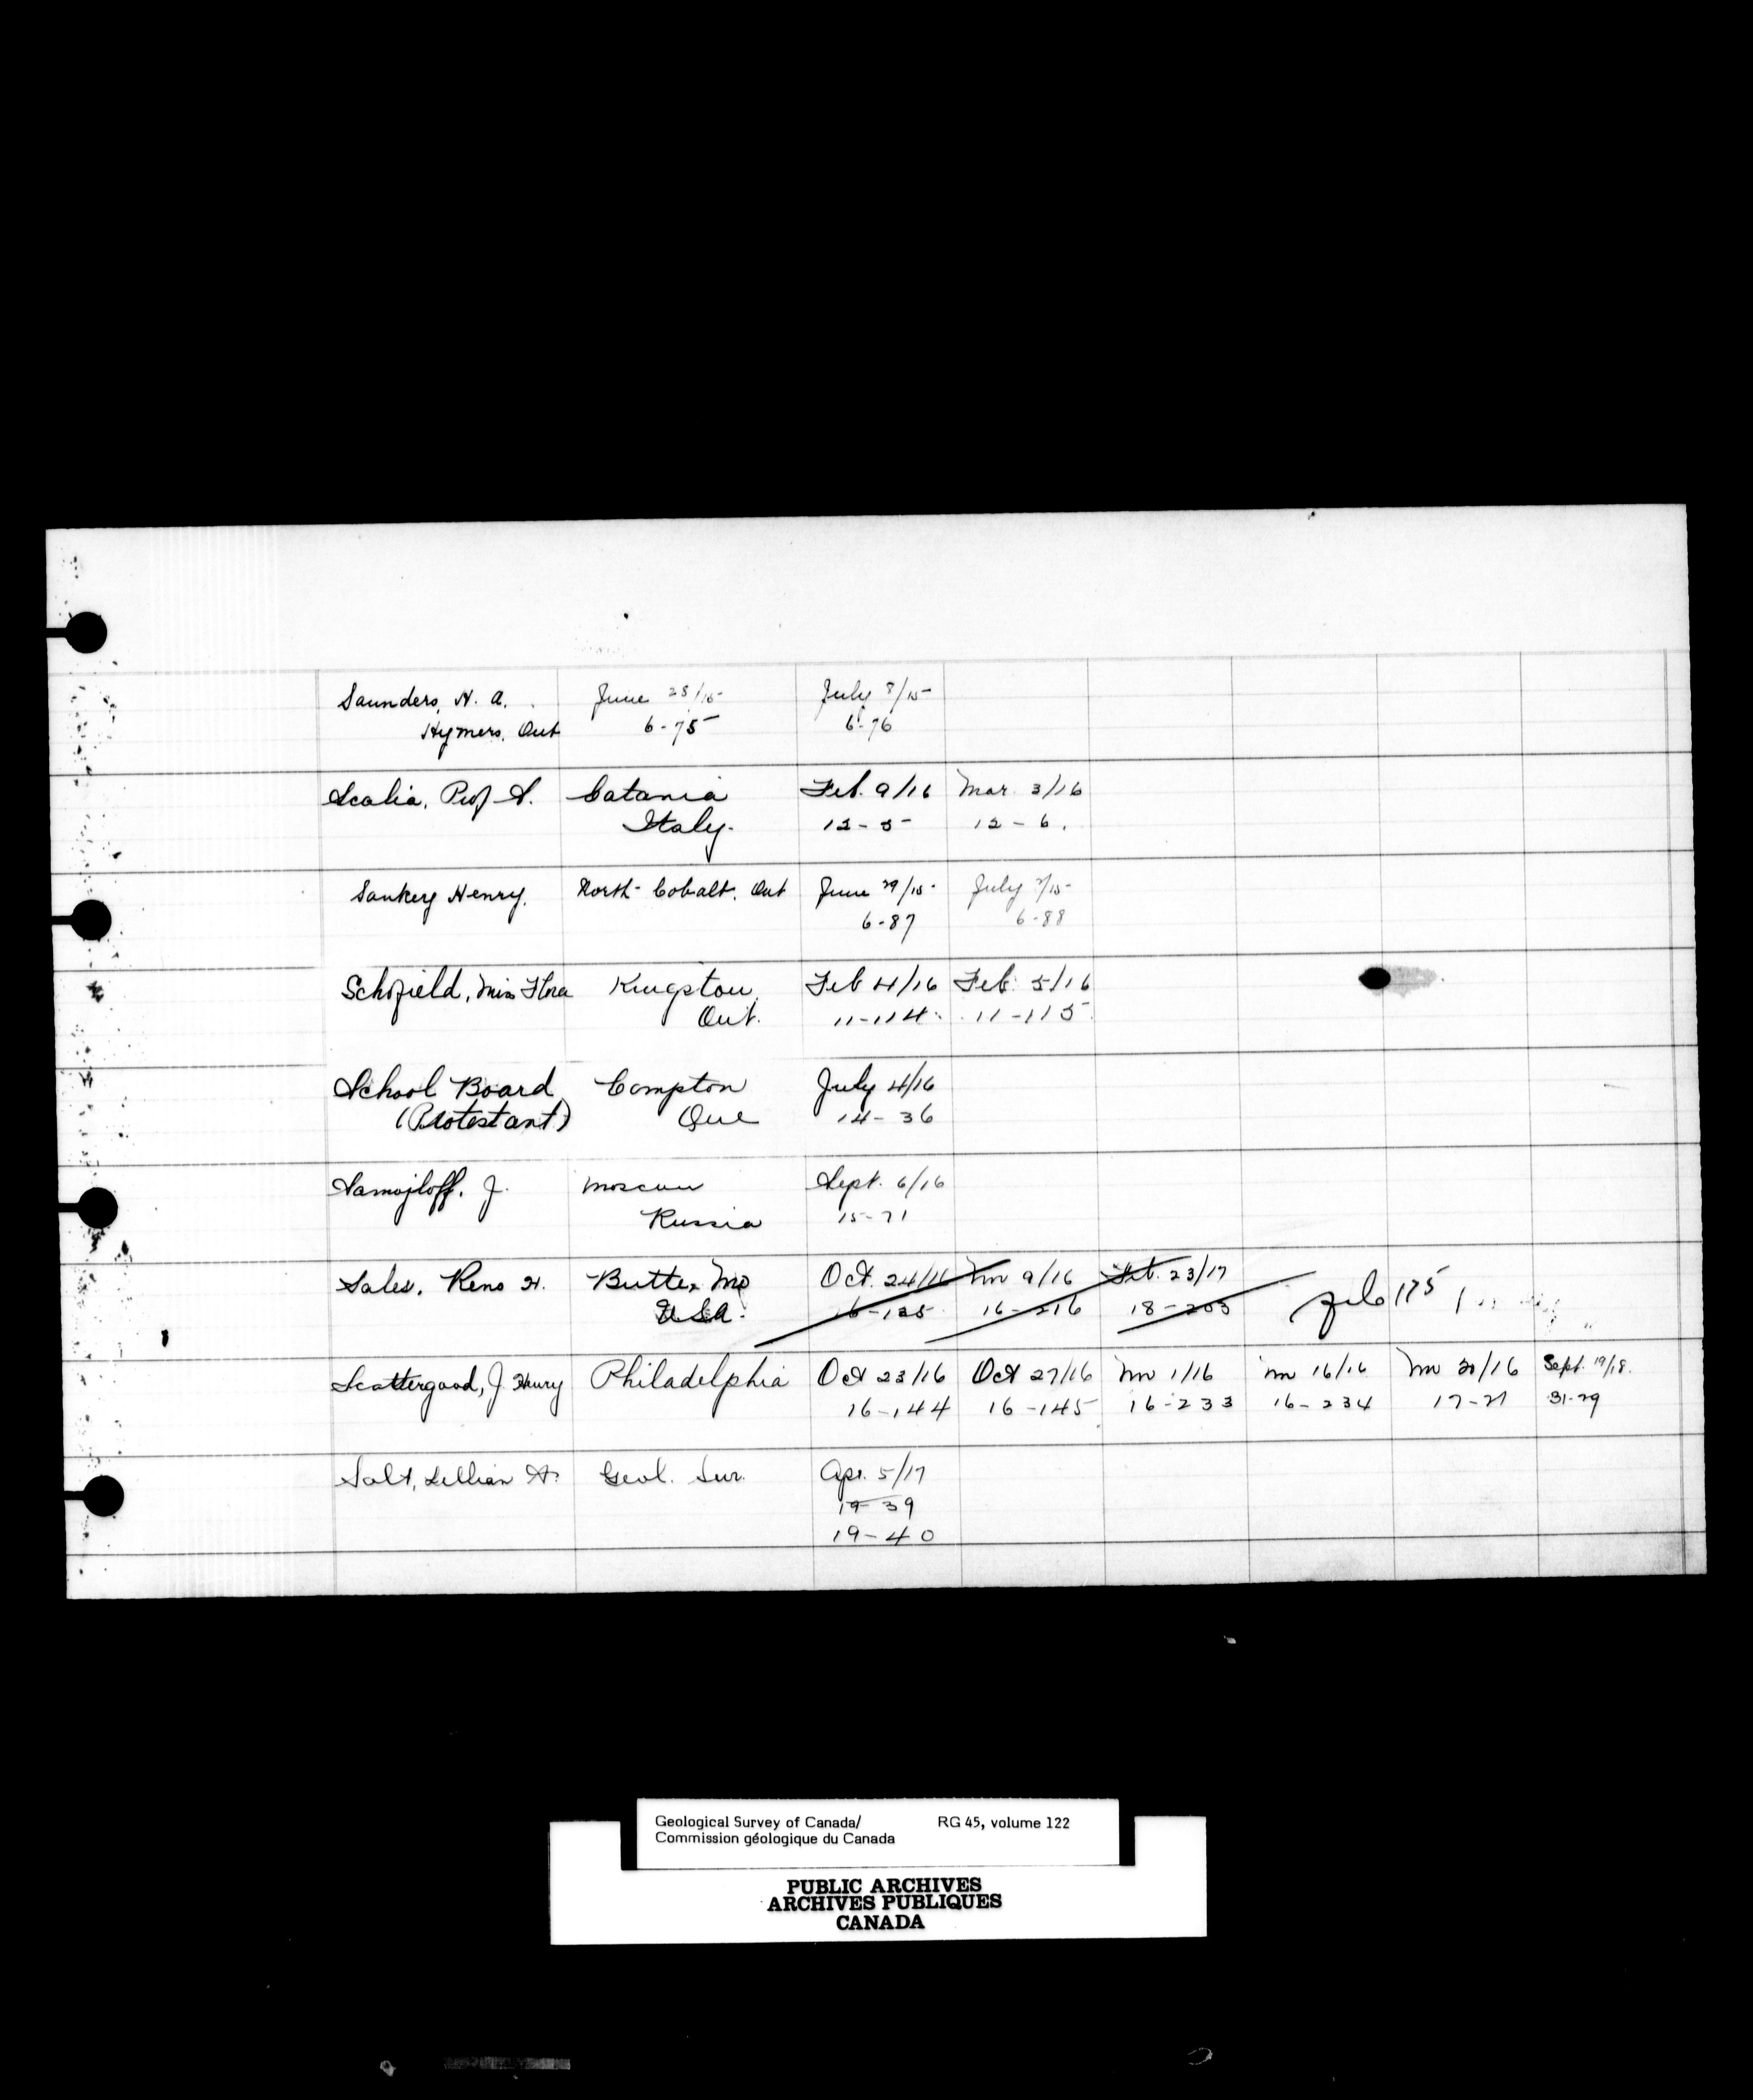 Saunders, H. A. June 28/15 July 8/15
Hymers, Ont 6-75 6-76
Scalia, Prof S. Catania Feb. 9/16 Mar. 3/16
Italy. 12-5 12-6.
Sankey Henry. North Cobalt, Ont June 29/15 July 7/15
6-87 6-88
Schofield, Miss Flora Kingston, Feb 4/16 Feb. 5/16
Ont. 11-114 11-115
School Board Compton July 4/16
(Protestant) Que 14-36
Samojloff, J. Moscow Sept. 6/16
Russia 15-71
Sales, Reno H. Butte, Mo Oct. 24/16 Nov 9/16 Feb. 23/17 file 175
USA. 16-125 16-216 18-203
Scattergood, J. Henry Philadelphia Oct 23/16 Oct 27/16 Nov 1/16 Nov 16/16 Nov 30/16 Sept. 19/18.
16-144 16-145 16-233 16-234 17-21 31-29
Salt, Lillian A. Geol. Sur. Apr. 5/17
19-39
19-40
Geological Survey of Canada/ RG 45, volume 122
Commission géologique du Canada
PUBLIC ARCHIVES
ARCHIVES PUBLIQUES
CANADA